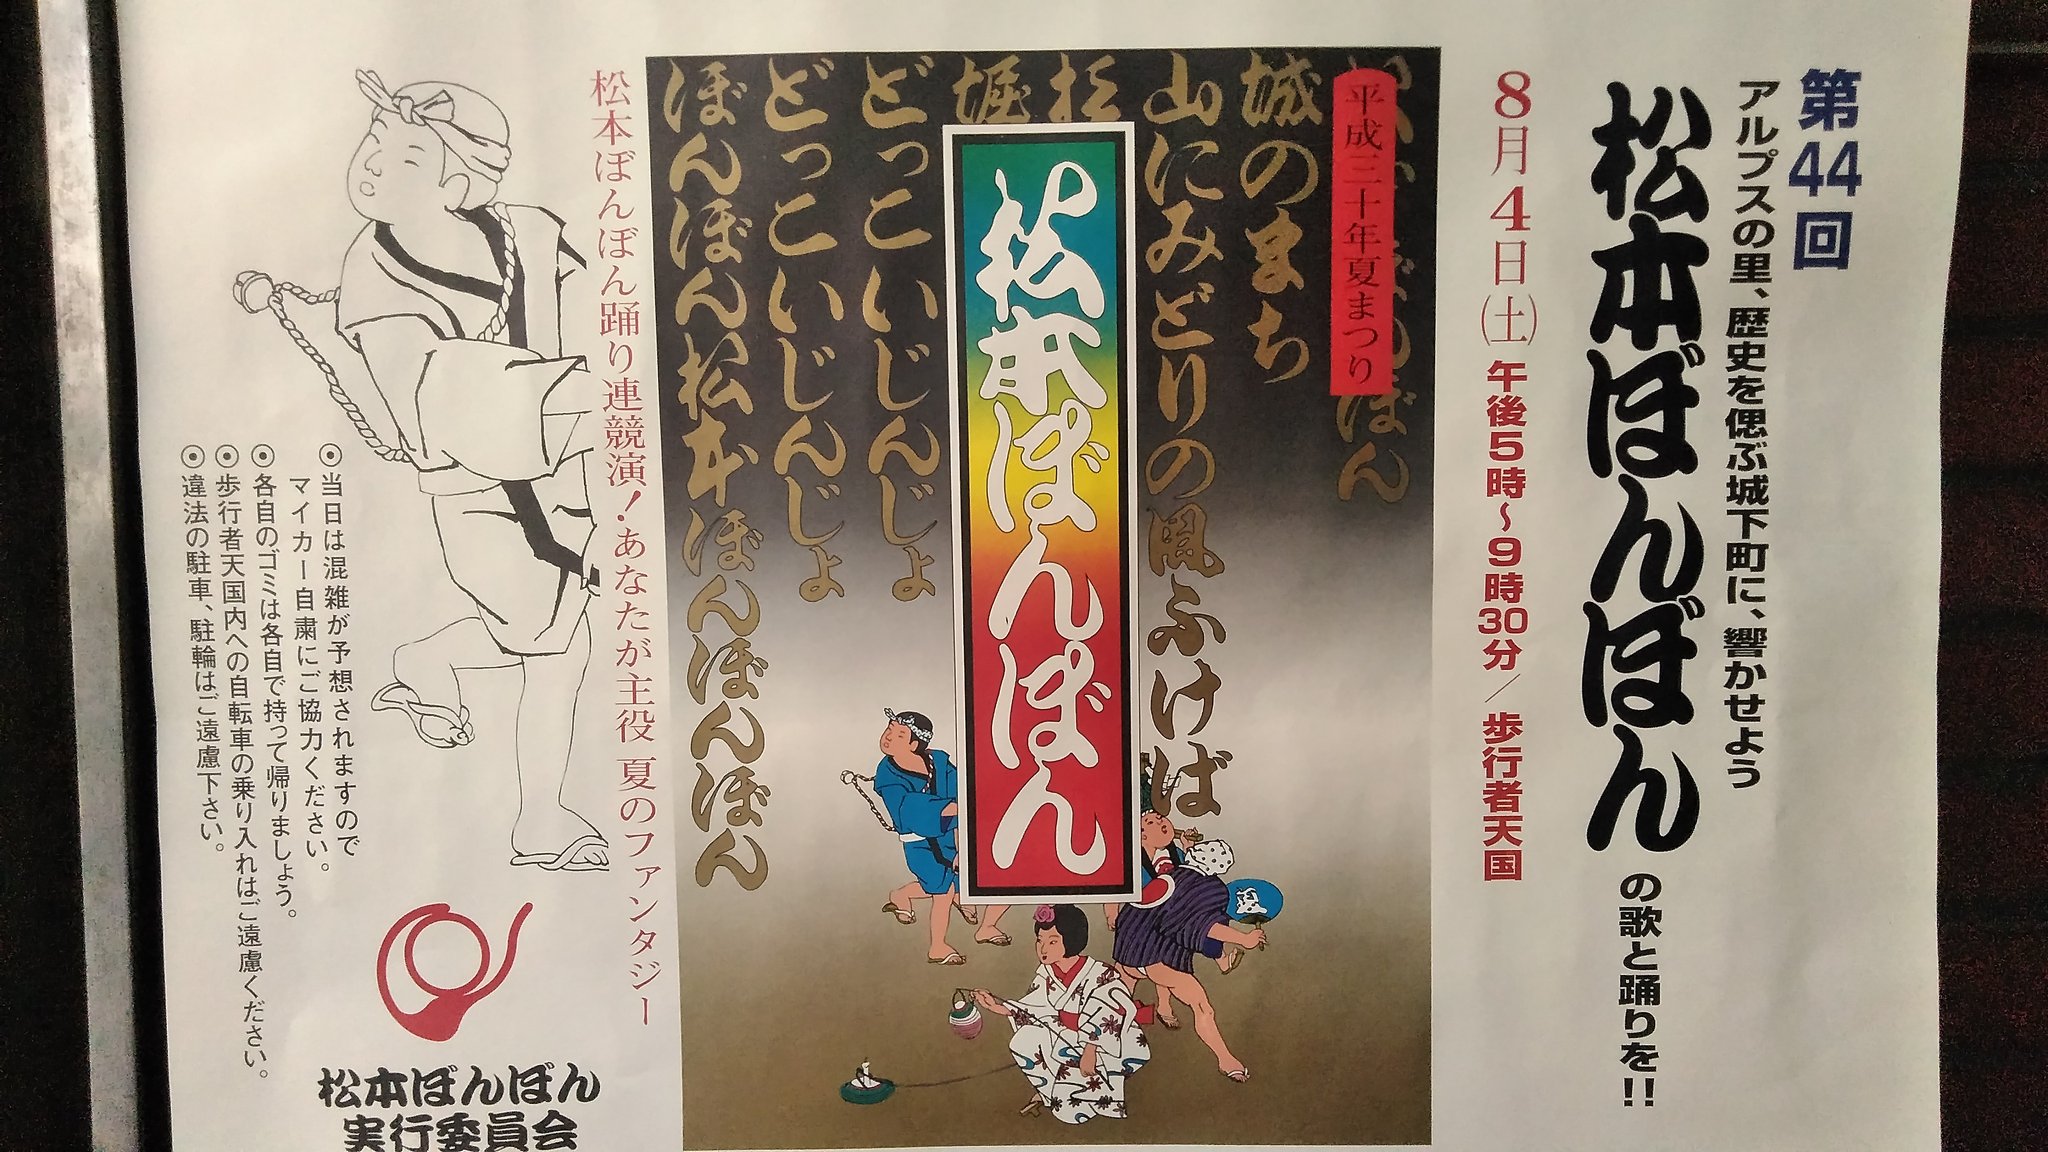 第44回
アルプスの里、歴史を偲ぶ城下町に、響かせよう
松本ぼんぼんの歌と踊りを!!
8月4日(土)午後5時~9時30分/歩行者天国
平成三十年夏まつり
ぼん
城のまち
山にみどりの風ふけば
松本ぼんぼん
どっこいじんじょ
どっこいじんじょ
ぼんぼんぼん松本ぼんぼんぼん
松本ぼんぼん踊り連競演!あなたが主役 夏のファンタジー
◉当日は混雑が予想されますので
マイカー自粛にご協力ください。
◉各自のゴミは各自で持って帰りましょう。
◉歩行者天国内への自転車の乗り入れはご遠慮ください。
◉違法の駐車、駐輪はご遠慮下さい。
松本ぼんぼん
実行委員会